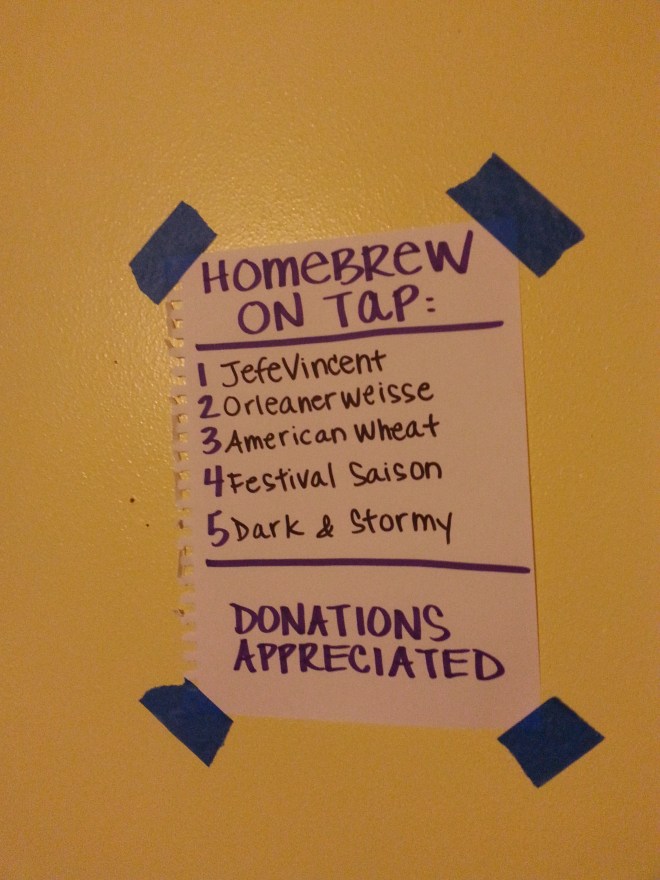 HOMEBREW
ON TAP:
1 JefeVincent
2 Orleanerweisse
3 American Wheat
4 Festival Saison
5 Dark & Stormy
DONATIONS
APPRECIATED